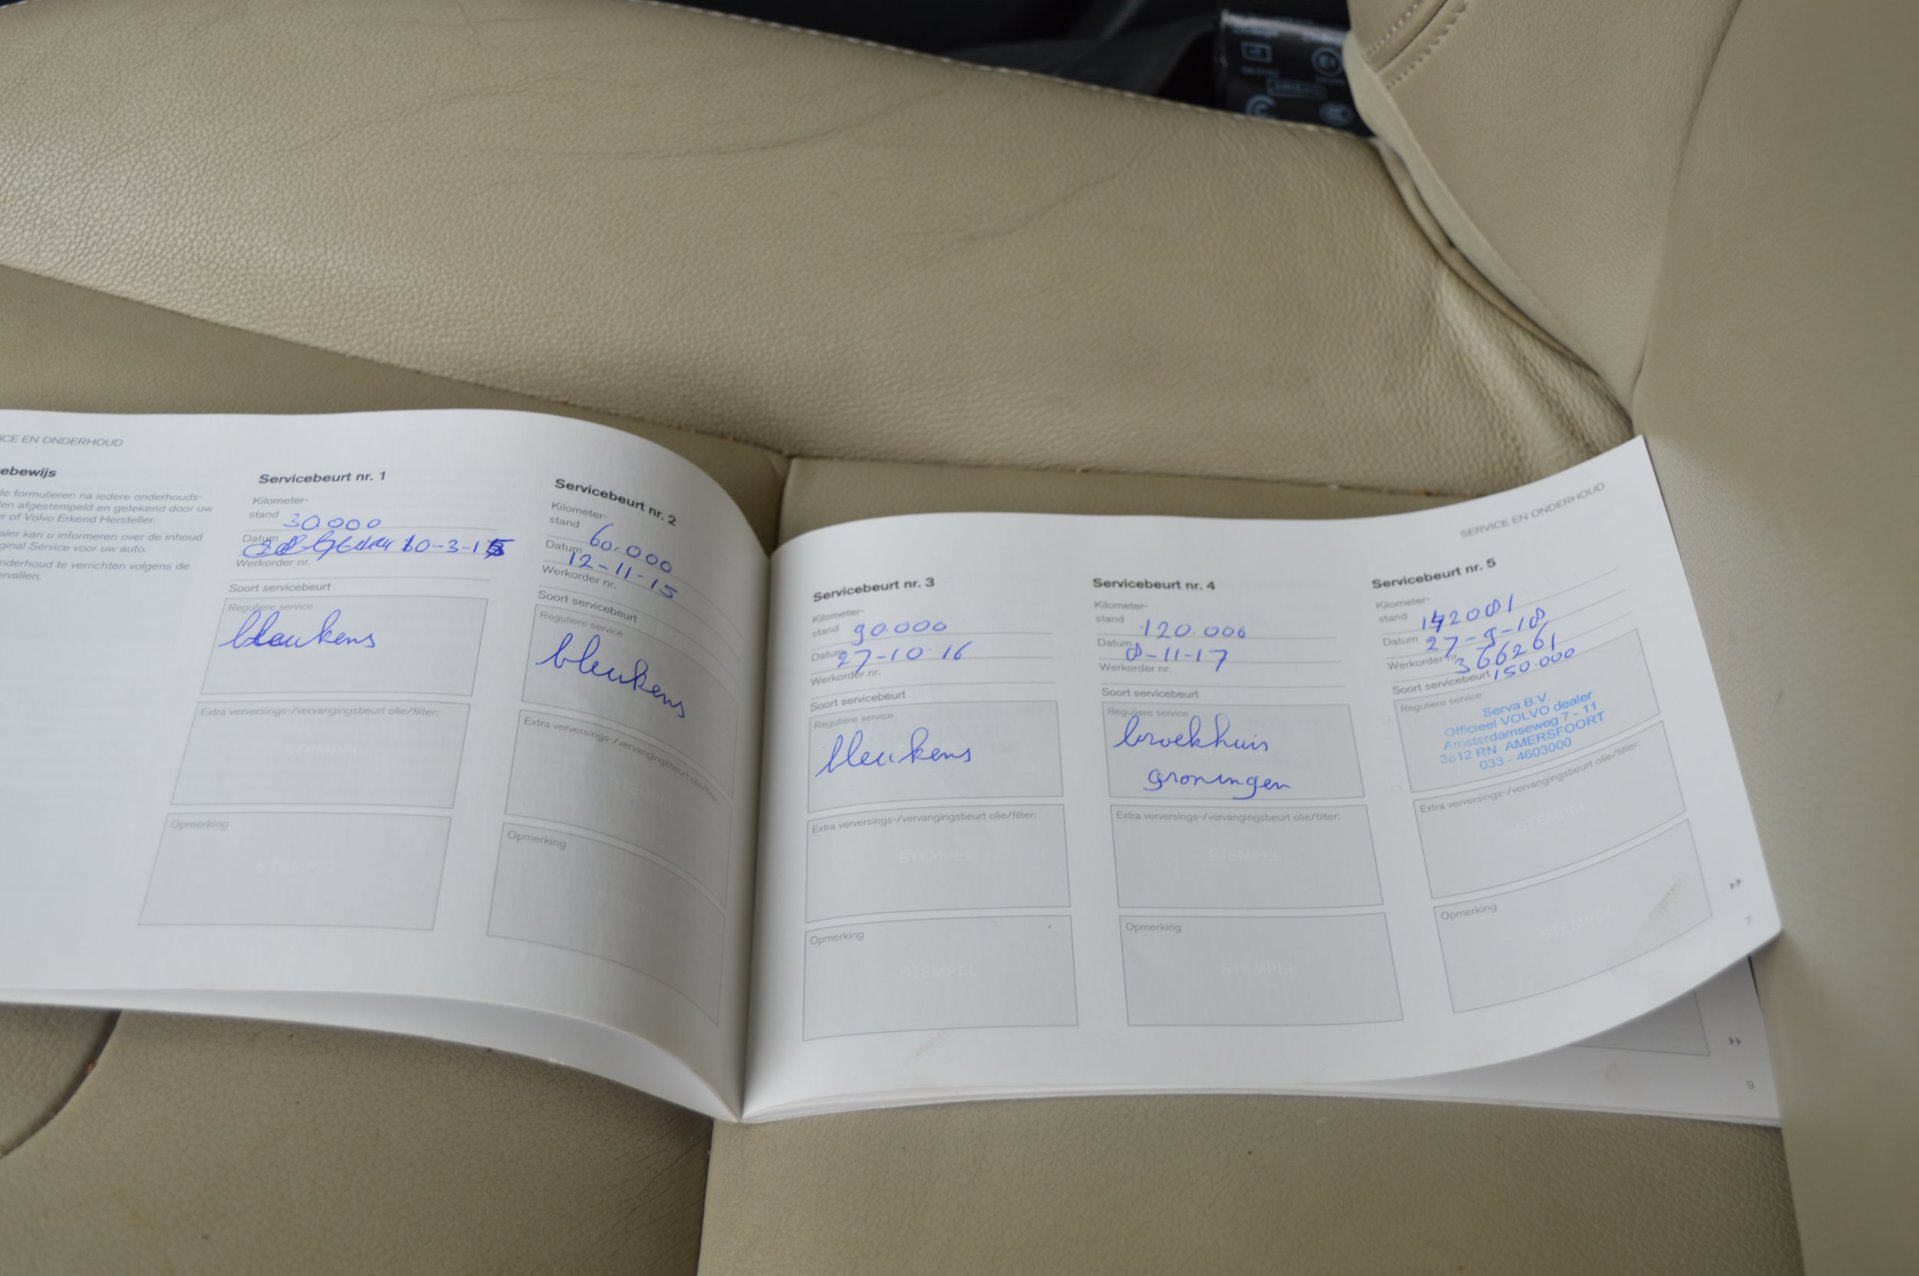 SERVICE EN ONDERHOUD
de formulieren na iedere onderhouds-
afgestempeld en getekend door uw
of Volvo Erkend Hersteller.
kan u informeren over de inhoud
Service voor uw auto.
te verrichten volgens de
Servicebeurt nr. 1
Kilometer-
stand 30000
Datum 10-3-15
Werkorder nr.
Soort servicebeurt
Reguliere service
bleukens
Extra verversings-/vervangingsbeurt olie/filter:
STEMPEL
Opmerking
STEMPEL
Servicebeurt nr. 2
Kilometer-
stand 60.000
Datum 12-11-15
Werkorder nr.
Soort servicebeurt
Reguliere service
bleukens
Extra verversings-/vervangingsbeurt olie/filter:
STEMPEL
Opmerking
STEMPEL
SERVICE EN ONDERHOUD
Servicebeurt nr. 3
Kilometer-
stand 90.000
Datum 27-10-16
Werkorder nr.
Soort servicebeurt
Reguliere service
bleukens
Extra verversings-/vervangingsbeurt olie/filter:
STEMPEL
Opmerking
STEMPEL
Servicebeurt nr. 4
Kilometer-
stand 120.000
Datum 8-11-17
Werkorder nr.
Soort servicebeurt
Reguliere service
broekhuis
groningen
Extra verversings-/vervangingsbeurt olie/filter:
STEMPEL
Opmerking
STEMPEL
Servicebeurt nr. 5
Kilometer-
stand 142081
Datum 27-9-18
Werkorder nr. 366261
Soort servicebeurt 150.000
Reguliere service
Serva B.V.
Officieel VOLVO dealer
Amsterdamseweg 7 - 11
3812 RN AMERSFOORT
033 - 4603000
Extra verversings-/vervangingsbeurt olie/filter:
STEMPEL
Opmerking
STEMPEL
7
9